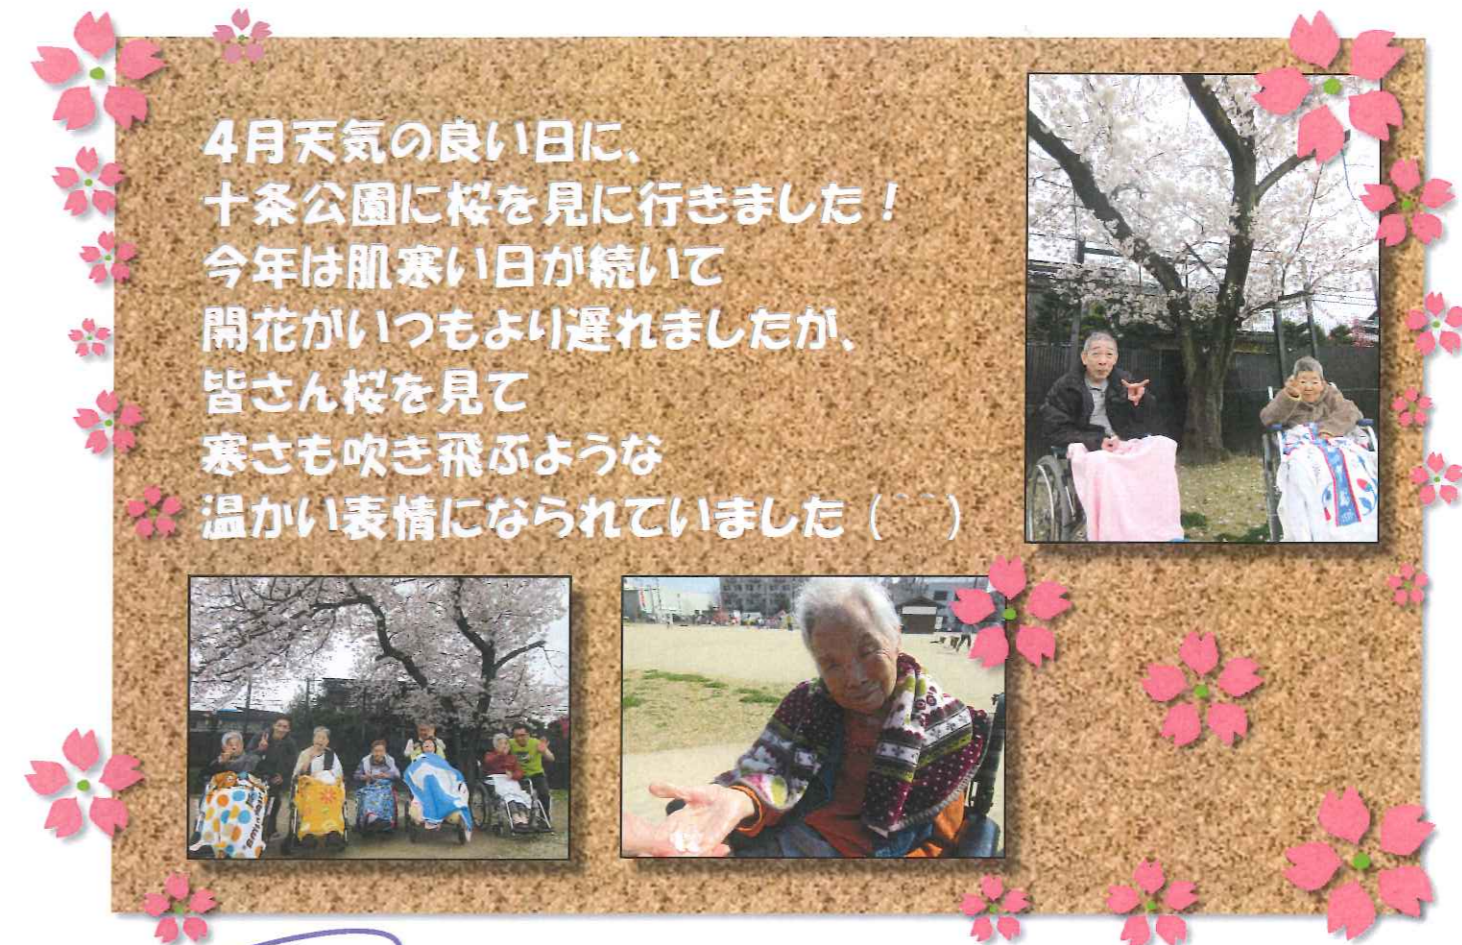 4月天気の良い日に、
十条公園に桜を見に行きました！
今年は肌寒い日が続いて
開花がいつもより遅れましたが、
皆さん桜を見て
寒さも吹き飛ぶような
温かい表情になられていました（^^）